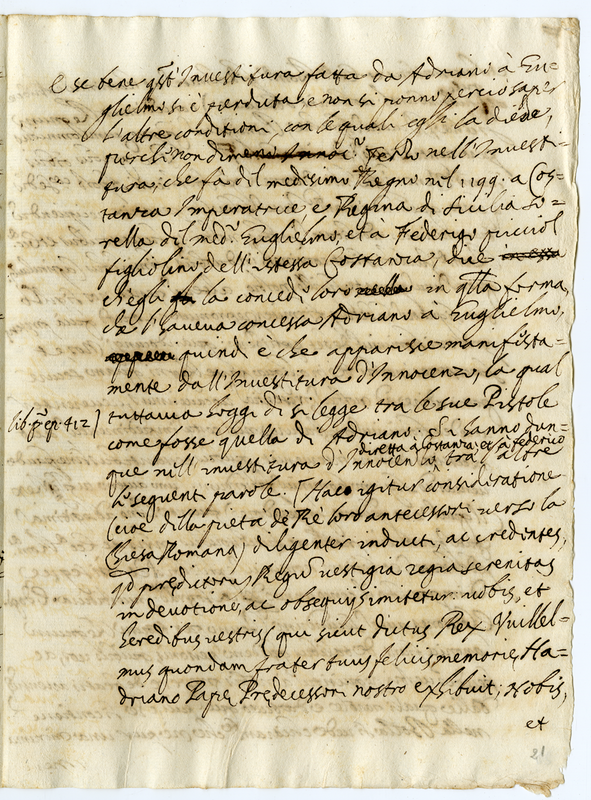 E se bene qst' Investitura fatta da Adriano à Gu=
glielmo si è perduta, e non si ponno perciò saper
l'altre conditioni, con le quali egli la diede,
perche nondimeno Innoc.º Terzo nell'Investi=
tura, che fà del medesimo Regno nel 1199. a Cos=
tanza Imperatrice, e Regina di Sicilia so=
rella del med.º Guglielmo, et à Federigo picciol
figliolino dell'istessa Costanza, dice
ch'egli la concede loro in qlla forma,
che l'haveva concessa Adriano à Guglielmo,
quindi è che apparisce manifesta=
mente dall'Investitura d'Innocenzo, la qual
tuttavia hoggi dì si legge tra le sue Pistole
lib. pº ep. 412]
come fosse quella di Adriano. Si hanno dun=
diretta à Costanza, et à Federico
que nell'investitura d'Innocenzo, tra l'altre
le seguenti parole. [Hac igitur consideratione
(cioè della pietà de Rè loro antecessori verso la
Chiesa Romana) diligenter inducti, ac credentes,
qd prędictorum Regũ vestigia regia serenitas
in devotione, ac obsequijs imitetur: vobis, et
heredibus vestris (qui sicut dictus Rex Vuillel=
mus quondam frater tuus felicis memorię Ha=
driano Papę Prędecessori nostro exhibuit; Nobis,
et
21